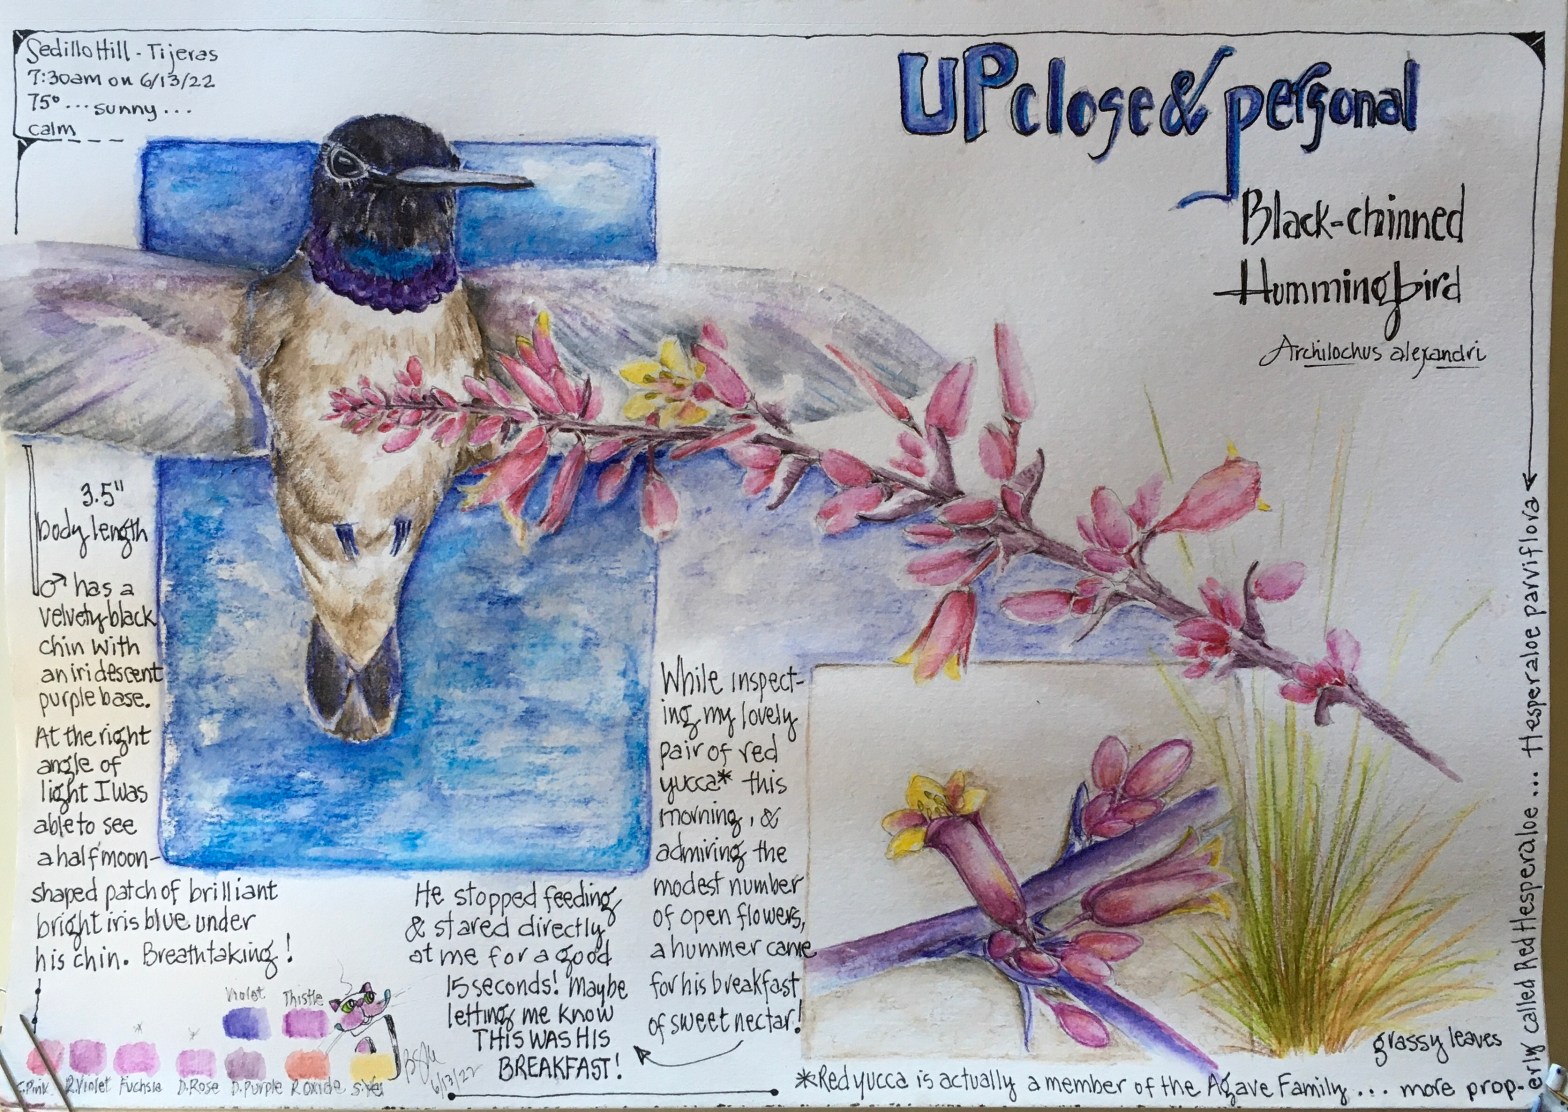 Sedillo Hill - Tijeras
7:30am on 6/13/22
75° ... sunny ...
calm
UP close & personal
Black-chinned
Hummingbird
Archilochus alexandri
3.5"
body length
♂ has a
velvety black
chin with
an iridescent
purple base.
At the right
angle of
light I was
able to see
a half moon-
shaped patch of brilliant
bright iris blue under
his chin. Breathtaking!
While inspect-
ing my lovely
pair of red
yucca* this
morning, &
admiring the
modest number
of open flowers,
a hummer came
for his breakfast
of sweet nectar!
He stopped feeding
& stared directly
at me for a good
15 seconds! Maybe
letting me know
THIS WAS HIS
BREAKFAST!
Violet Thistle
C. Pink R. Violet Fuchsia D. Rose D. Purple R. Oxide
6/13/22
grassy leaves
*Red yucca is actually a member of the Agave Family .... more prop-
erly called Red Hesperaloe ... Hesperaloe parviflora